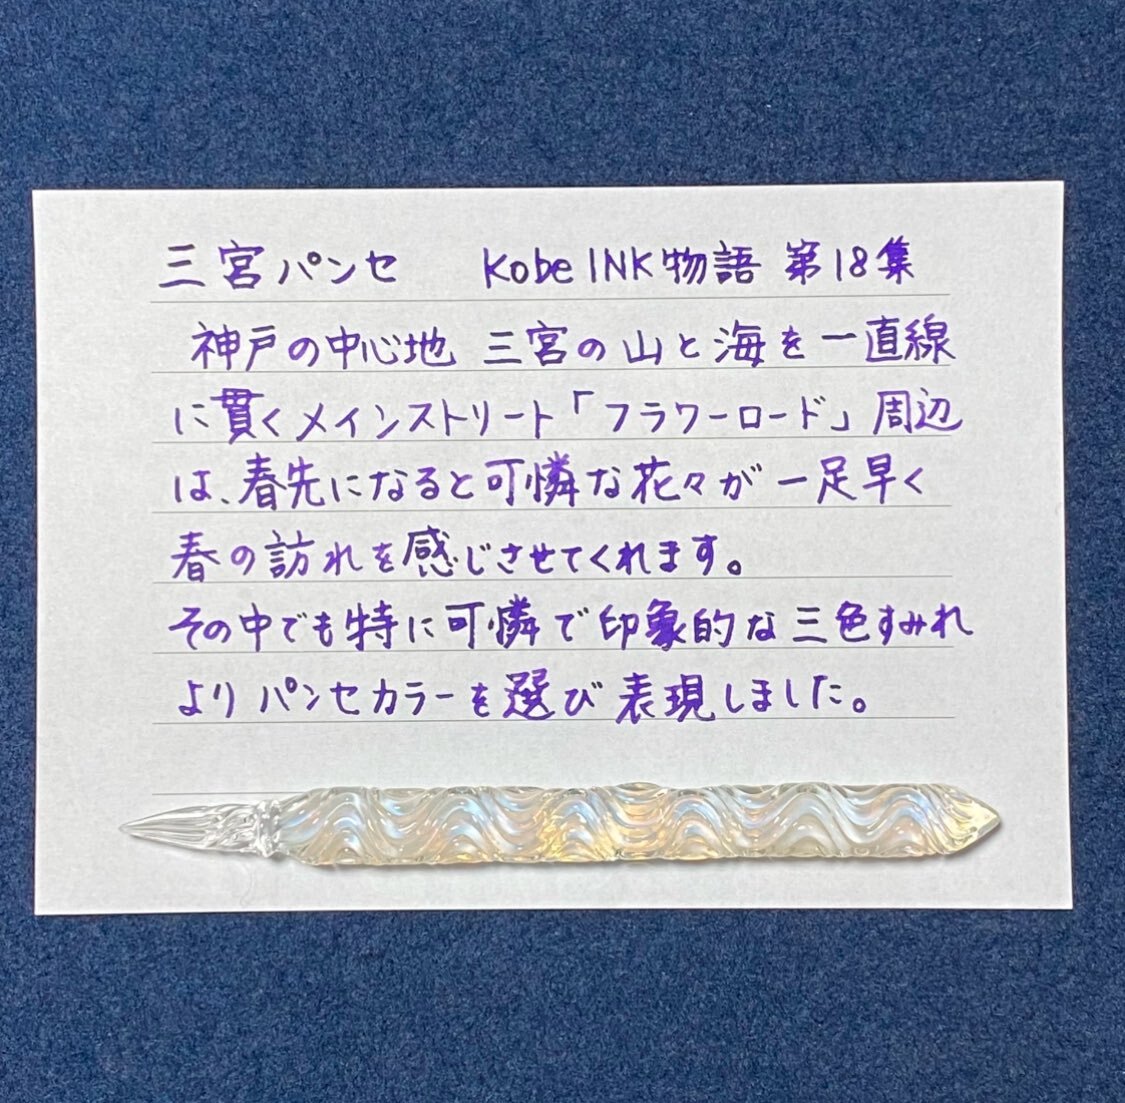 三宮パンセ Kobe INK物語 第18集
神戸の中心地 三宮の山と海を一直線
に貫くメインストリート「フラワーロード」周辺
は、春先になると可憐な花々が一足早く
春の訪れを感じさせてくれます。
その中でも特に可憐で印象的な三色すみれ
よりパンセカラーを選び表現しました。